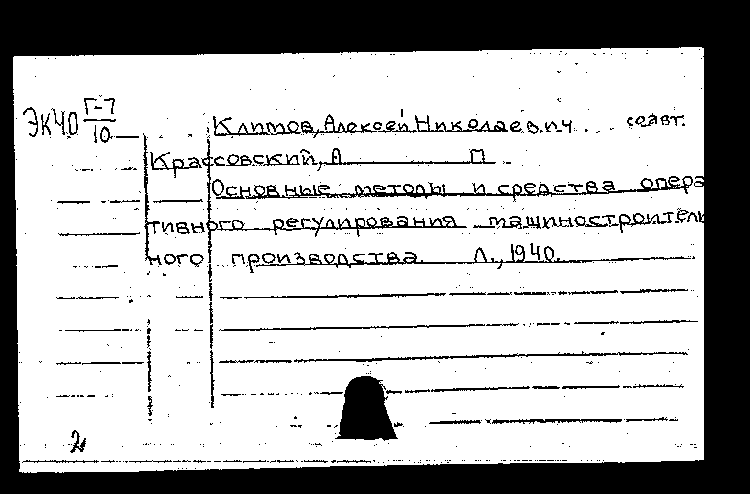 ЭК40 Г-7/10
Климов, Алексей Николаевич соавт.
Крассовский, А П
Основные методы и средства опера
тивного регулирования машиностроитель
ного производства. Л., 1940.
2